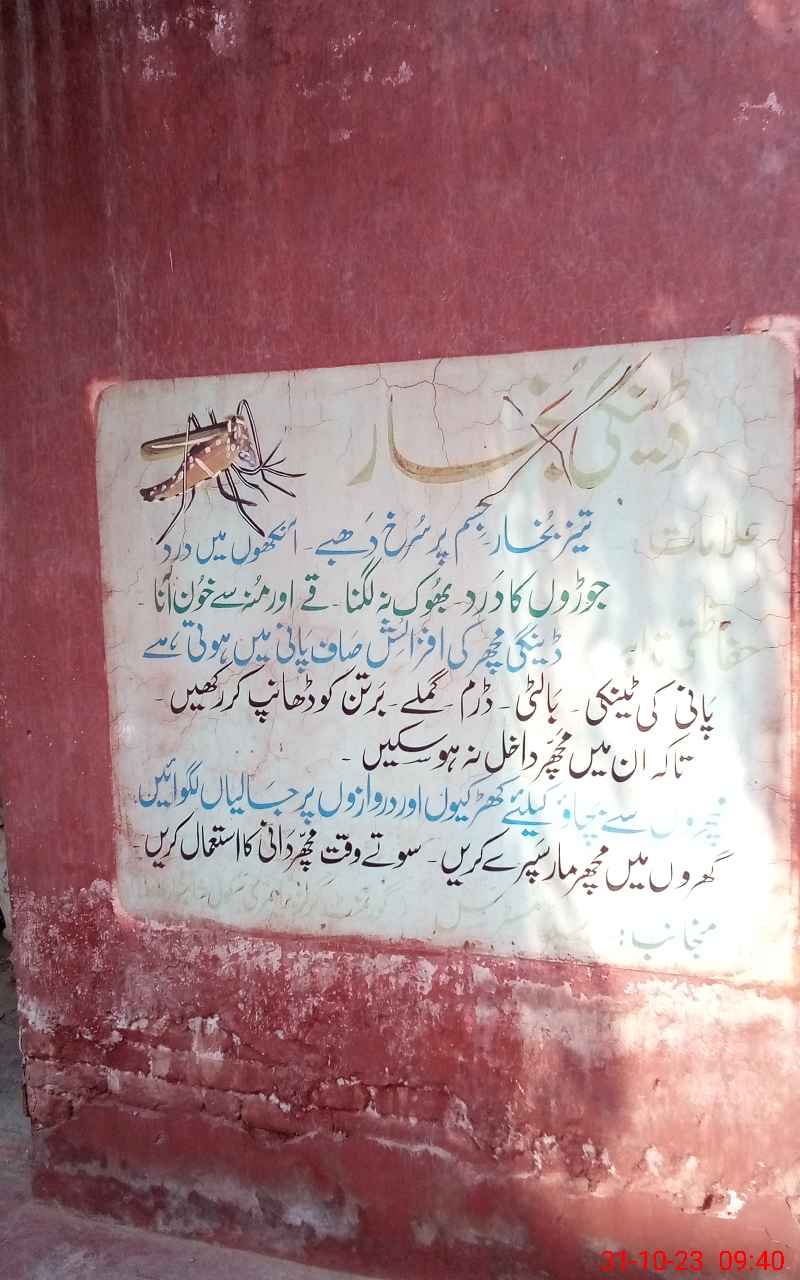 ڈینگی بُخار
علامات: تیز بُخار۔ جسم پر سُرخ دَھبے۔ آنکھوں میں درد
جوڑوں کا دَرد۔ بھُوک نہ لگنا۔ قے اور مُنہ سے خوُن آنا۔
حفاظتی ڈینگی مچھر کی افزائش صاف پانی میں ہوتی ہے
پَانی کی ٹینکی۔ بَالٹی۔ ڈرم۔ گملے۔ بَرتن کو ڈھانپ کر رکھیں۔
تاکہ ان میں مچھّر داخل نہ ہو سکیں۔
مچھروں سے بچاؤ کیلئے کھڑکیوں اور دروازوں پر جَالیاں لگوائیں
گھروں میں مچھر مار سَپرے کریں۔ سوتے وقت مچھّر دَانی کا استعمال کریں۔
منجانب:
31-10-23 09:40